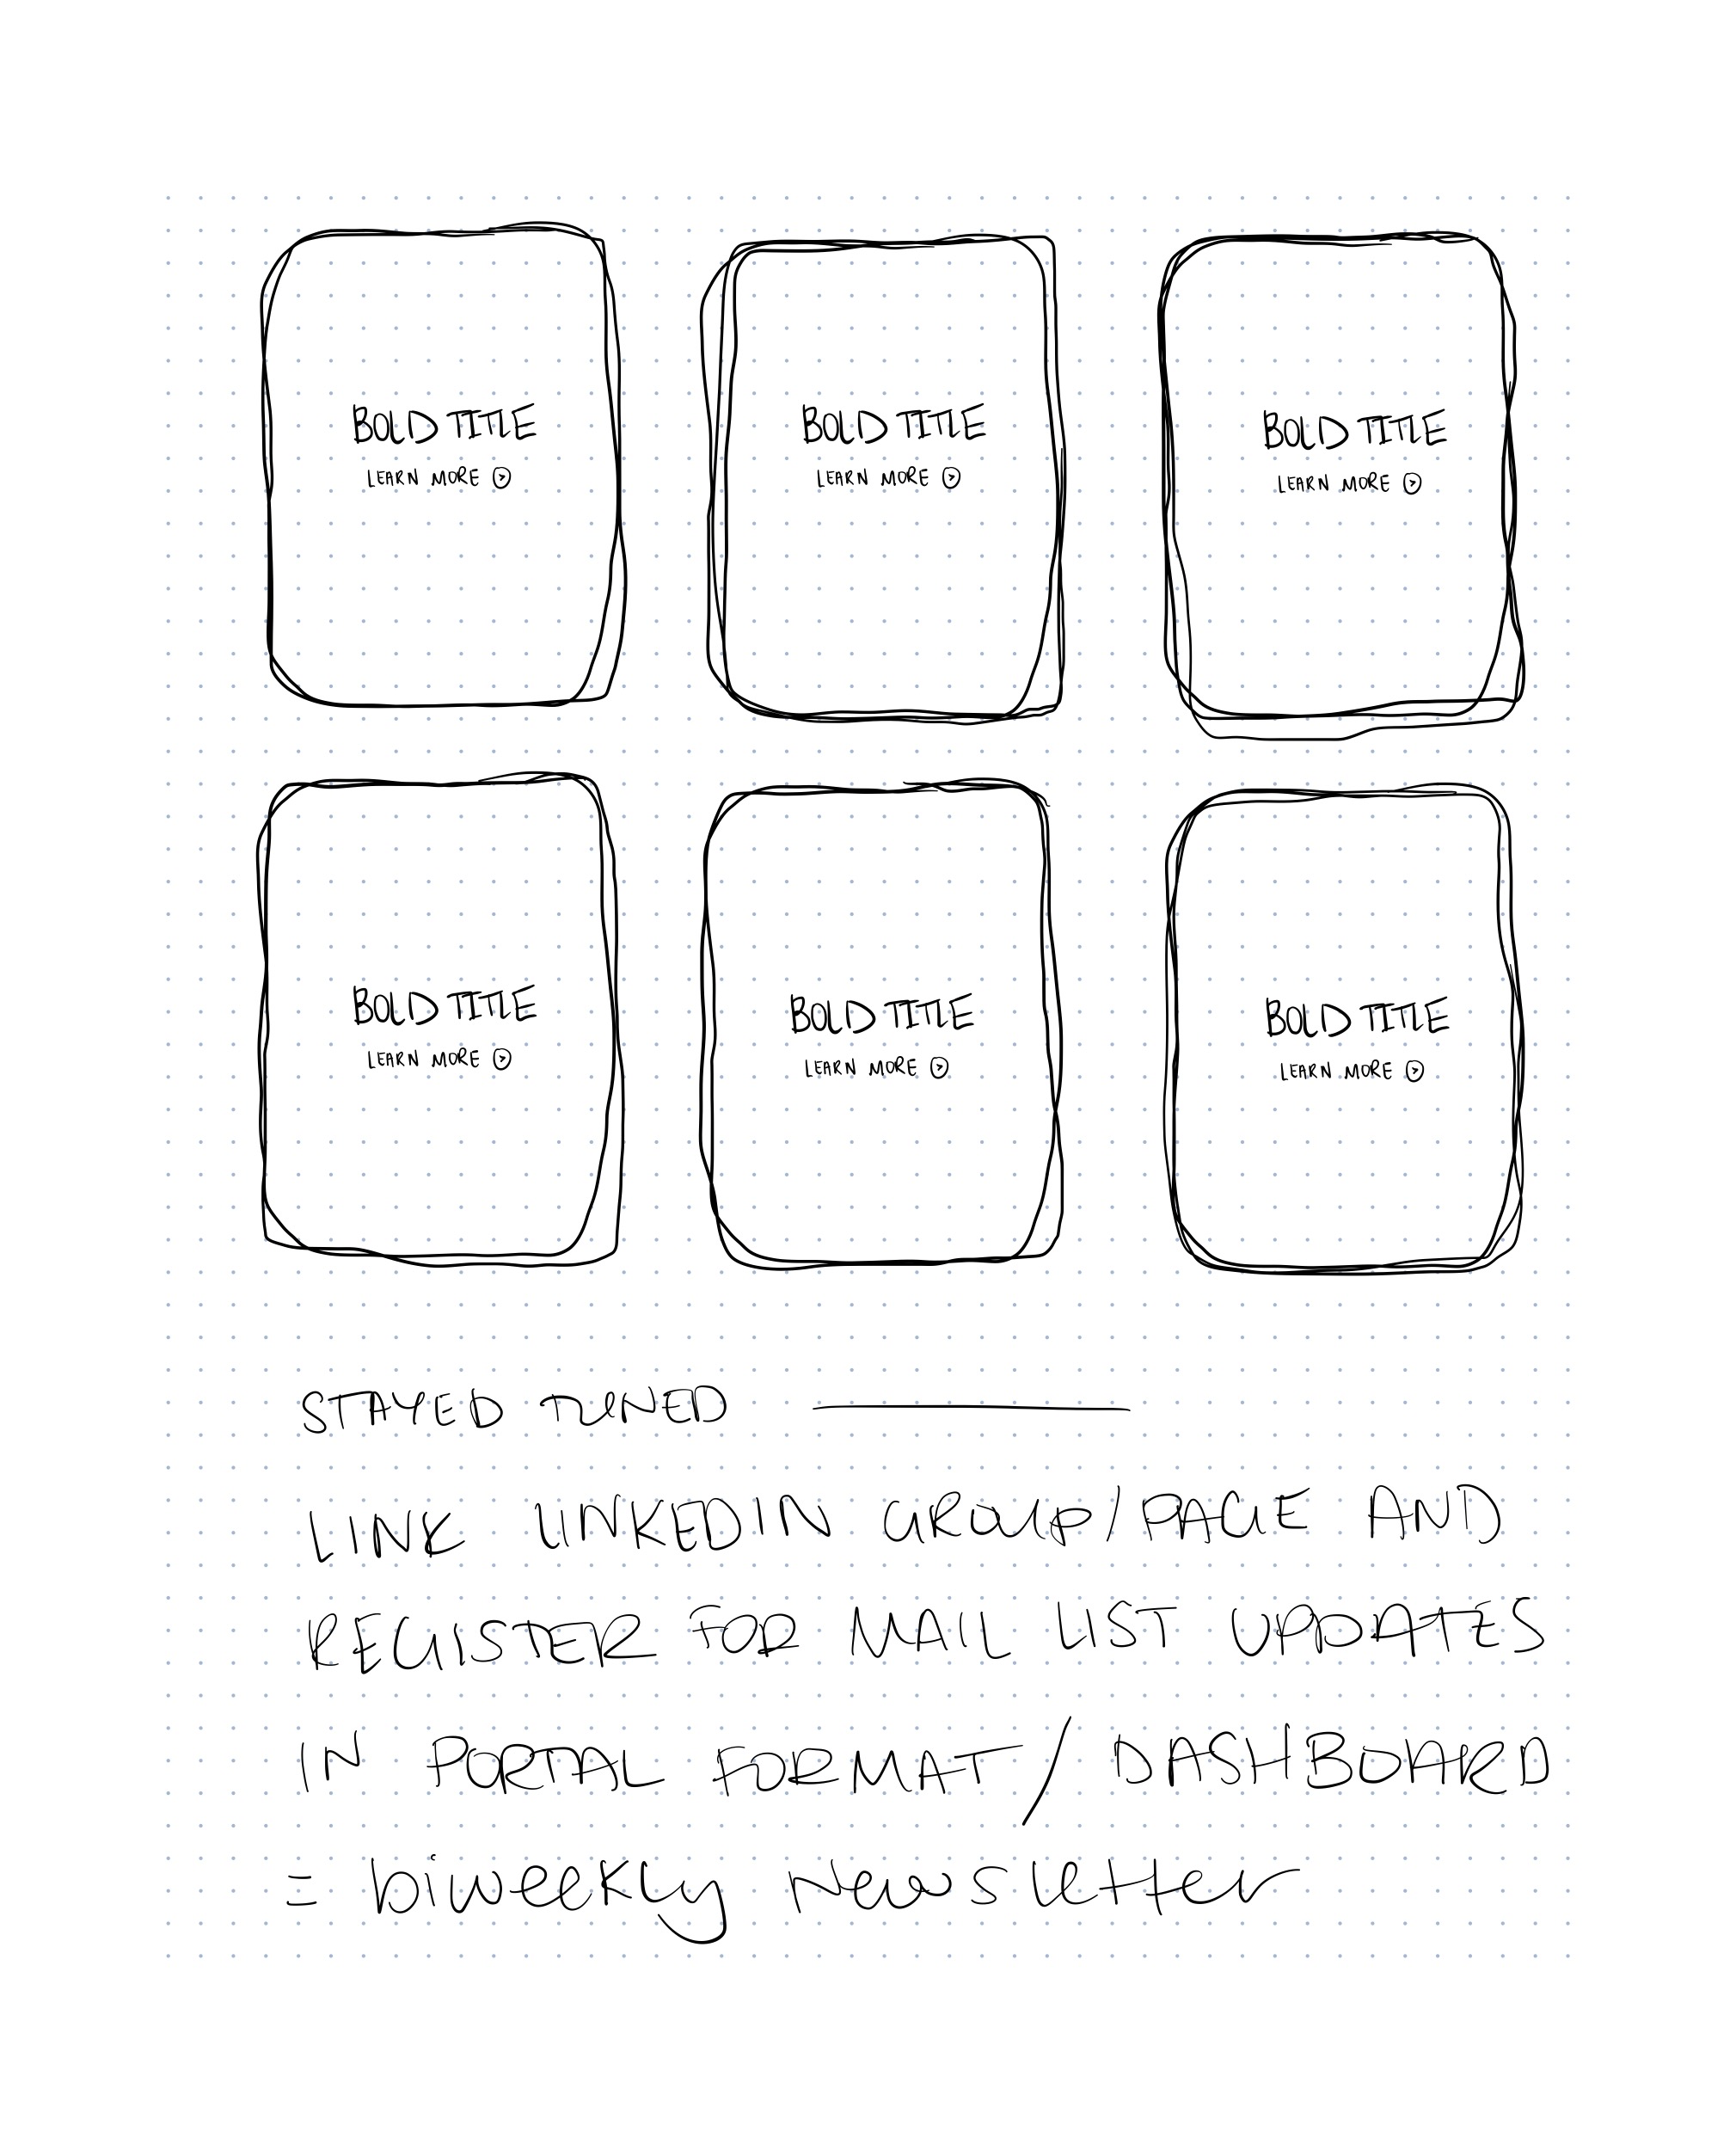 BOLD TITLE
LEARN MORE
BOLD TITLE
LEARN MORE
BOLD TITLE
LEARN MORE
BOLD TITLE
LEARN MORE
BOLD TITLE
LEARN MORE
BOLD TITLE
LEARN MORE
STAYED TUNED
LINK LINKEDIN GROUP/PAGE AND
REGISTER FOR MAIL LIST UPDATES
IN PORTAL FORMAT/DASHBOARD
= biweekly Newsletter